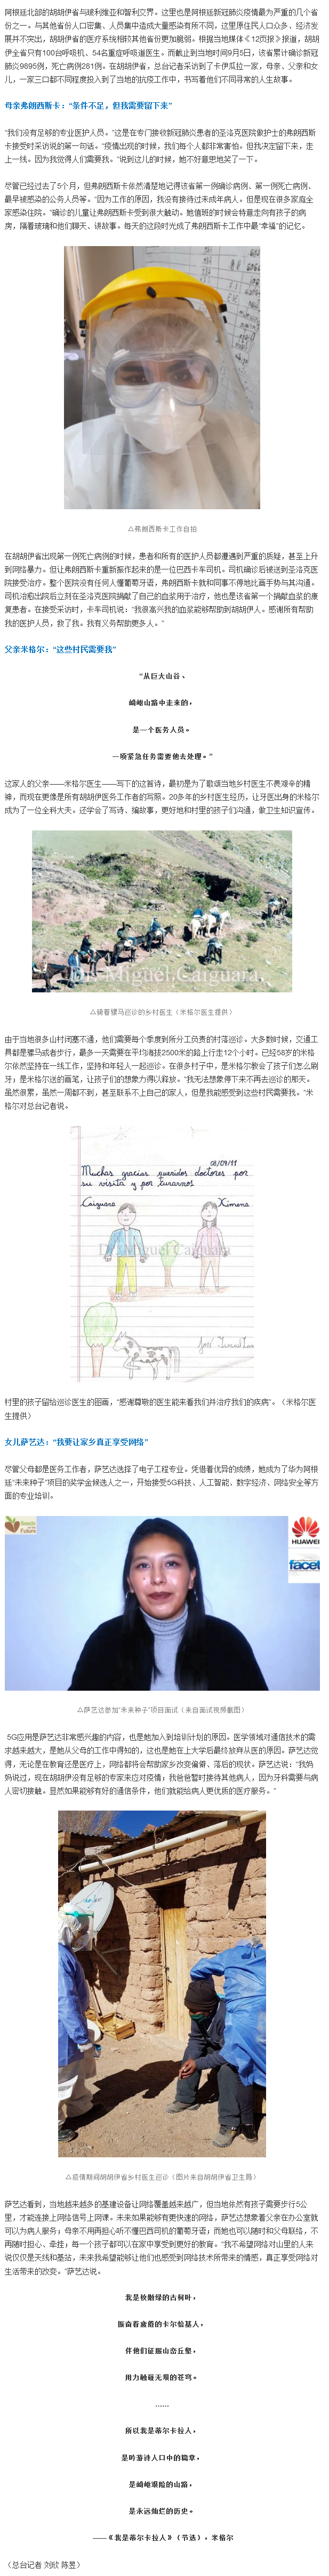 阿根廷北部的胡胡伊省与玻利维亚和智利交界。这里也是阿根廷新冠肺炎疫情最为严重的几个省
份之一。与其他省份人口密集、人员集中造成大量感染有所不同，这里原住民人口众多、经济发
展并不突出，胡胡伊省的医疗系统相较其他省份更加脆弱。根据当地媒体《12页报》报道，胡胡
伊全省只有100台呼吸机、54名重症呼吸道医生。而截止到当地时间9月5日，该省累计确诊新冠
肺炎9895例，死亡病例281例。在胡胡伊省，总台记者采访到了卡伊瓜拉一家，母亲、父亲和女
儿，一家三口都不同程度投入到了当地的抗疫工作中，书写着他们不同寻常的人生故事。
母亲弗朗西斯卡：“条件不足，但我需要留下来”
“我们没有足够的专业医护人员。”这是在专门接收新冠肺炎患者的圣洛克医院做护士的弗朗西斯
卡接受时采访说的第一句话。“疫情出现的时候，我们每个人都非常害怕。但我决定留下来，走
上一线。因为我觉得人们需要我。”说到这儿的时候，她不好意思地笑了一下。
尽管已经过去了5个月，但弗朗西斯卡依然清楚地记得该省第一例确诊病例、第一例死亡病例、
最早被感染的公务人员等。“因为工作的原因，我没有接待过未成年病人。但是现在很多家庭全
家感染住院。”确诊的儿童让弗朗西斯卡受到很大触动。她值班的时候会特意走向有孩子的病
房，隔着玻璃和他们聊天、讲故事。每天的这段时光成了弗朗西斯卡工作中最“幸福”的记忆。
△弗朗西斯卡工作自拍
在胡胡伊省出现第一例死亡病例的时候，患者和所有的医护人员都遭遇到严重的质疑，甚至上升
到网络暴力。但让弗朗西斯卡重新振作起来的是一位巴西卡车司机。司机确诊后被送到圣洛克医
院接受治疗。整个医院没有任何人懂葡萄牙语，弗朗西斯卡就和同事不停地比画手势与其沟通。
司机治愈出院后立刻在圣洛克医院捐献了自己的血浆用于治疗，他也是该省第一个捐献血浆的康
复患者。在接受采访时，卡车司机说：“我很高兴我的血浆能够帮助到胡胡伊人。感谢所有帮助
我的医护人员，救了我。我有义务帮助更多人。”
父亲米格尔：“这些村民需要我”
“从巨大山谷、
崎岖山路中走来的，
是一个医务人员。
一项紧急任务需要他去处理。”
这家人的父亲——米格尔医生——写下的这首诗，最初是为了歌颂当地乡村医生不畏艰辛的精
神，而现在更像是所有胡胡伊医务工作者的写照。20多年的乡村医生经历，让牙医出身的米格尔
成为了一位全科大夫。还学会了写诗、编故事，更好地和村里的孩子们沟通，做卫生知识宣传。
Dr. Miguel Caiguara.
△骑着骡马巡诊的乡村医生（米格尔医生提供）
由于当地很多山村闭塞不通，他们需要每个季度到所分工负责的村落巡诊。大多数时候，交通工
具都是骡马或者步行，最多一天需要在平均海拔2500米的路上行走12个小时。已经58岁的米格
尔依然坚持在一线工作，坚持和年轻人一起巡诊。在很多村子中，是米格尔教会了孩子们怎么刷
牙；是米格尔送的画笔，让孩子们的想象力得以释放。“我无法想象停下来不再去巡诊的那天。
虽然很累，虽然一周都不到，甚至联系不上自己的家人，但是我能感受到这些村民需要我。”米
格尔对总台记者说。
08/09/11
Muchas gracias queridos doctores por
su visita y por curarnos
Caiguara
Ximena
Dr. Miguel Caiguara
村里的孩子留给巡诊医生的图画，“感谢尊敬的医生能来看我们并治疗我们的疾病”。（米格尔医
生提供）
女儿萨艺达：“我要让家乡真正享受网络”
尽管父母都是医务工作者，萨艺达选择了电子工程专业。凭借着优异的成绩，她成为了华为阿根
廷“未来种子”项目的奖学金候选人之一，开始接受5G科技、人工智能、数字经济、网络安全等方
面的专业培训。
Seeds
for the
Future
HUAWEI
facet
△萨艺达参加“未来种子”项目面试（来自面试视频截图）
5G应用是萨艺达非常感兴趣的内容，也是她加入到培训计划的原因。医学领域对通信技术的需
求越来越大，是她从父母的工作中得知的，这也是她在上大学后最终放弃从医的原因。萨艺达觉
得，无论是在教育还是医疗上，网络都将会帮助家乡改变偏僻、落后的现状。萨艺达说：“我妈
妈说过，现在胡胡伊没有足够的专家来应对疫情；我爸爸暂时接待其他病人，因为牙科需要与病
人密切接触。显然如果能够有好的通信条件，他们就能给病人更优质的医疗服务。”
△疫情期间胡胡伊省乡村医生巡诊（图片来自胡胡伊省卫生局）
萨艺达看到，当地越来越多的基建设备让网络覆盖越来越广，但当地依然有孩子需要步行5公
里，才能连接上网络信号上网课。未来如果能够有更快速的网络，萨艺达想象着父亲在办公室就
可以为病人服务；母亲不用再担心听不懂巴西司机的葡萄牙语；而她也可以随时和父母联络，不
再随时担心、牵挂；每一个孩子都可以在家中享受到更好的教育。“我不希望网络对山里的人来
说仅仅是天线和基站，未来我希望能够让他们也感受到网络技术所带来的情感，真正享受网络对
生活带来的改变。”萨艺达说。
我是牧散绿的古柯叶，
振奋着疲惫的卡尔恰基人，
伴他们征服山峦丘壑，
用力触碰无垠的苍穹。
……
所以我是蒂尔卡拉人，
是吟游诗人口中的篇章，
是崎岖艰险的山路，
是永远灿烂的历史。
——《我是蒂尔卡拉人》（节选），米格尔
（总台记者 刘欢 陈昱）